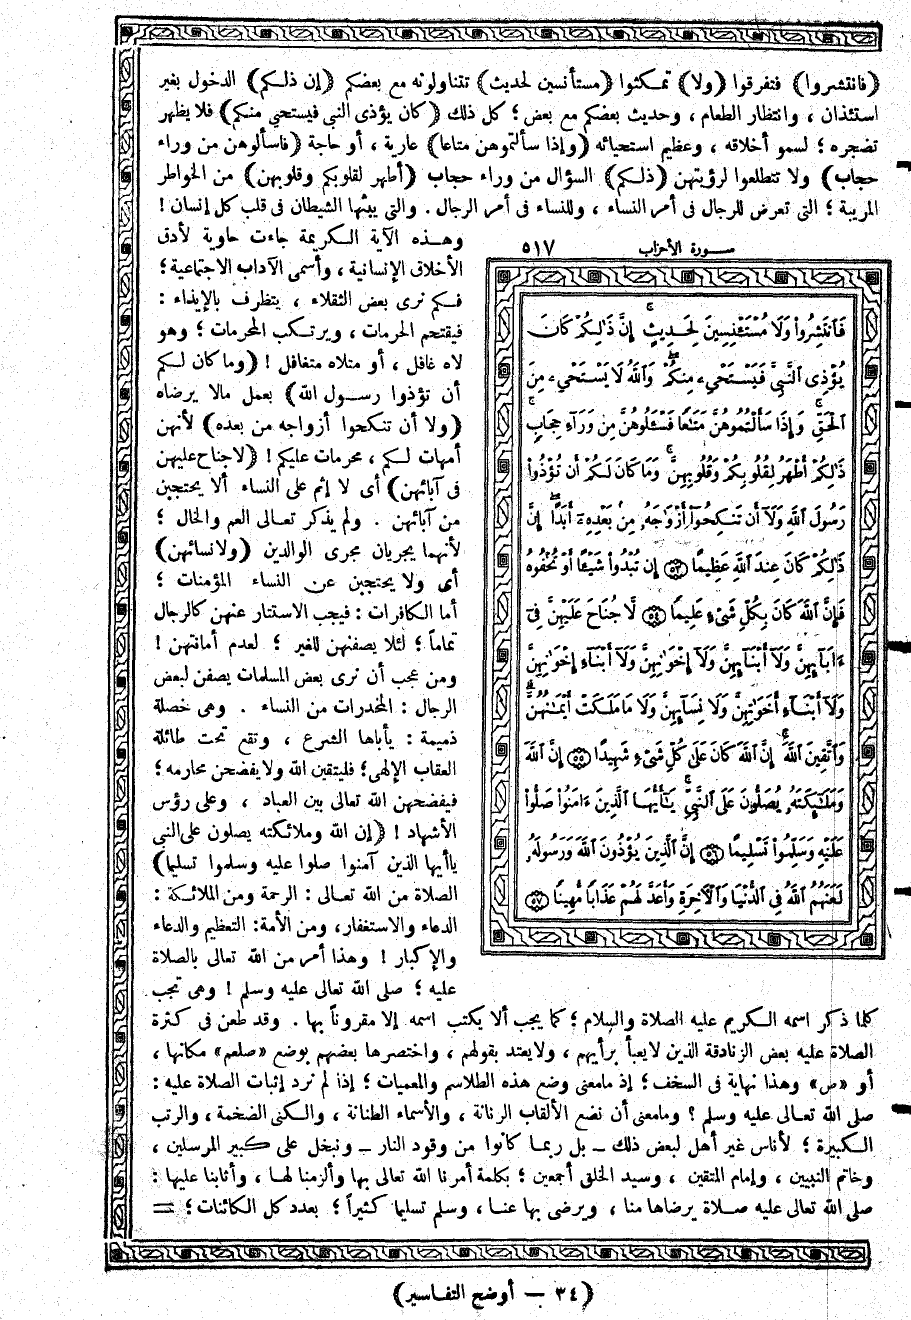 (فانتشروا) فتفرقوا (ولا) تمكثوا (مستأنسين لحديث) تتناولونه مع بعضكم (إن ذلكم) الدخول بغير
استئذان ، وانتظار الطعام ، وحديث بعضكم مع بعض ؛ كل ذلك (كان يؤذى النبى فيستحي منكم) فلا يظهر
تضجره ؛ لسمو أخلاقه ، وعظيم استحيائه (وإذا سألتموهن متاعا) عارية ، أو حاجة (فاسألوهن من وراء
حجاب) ولا تتطلعوا لرؤيتهن (ذلكم) السؤال من وراء حجاب (أطهر لقلوبكم وقلوبهن) من الخواطر
المريبة ؛ التى تعرض للرجال فى أمر النساء ، وللنساء فى أمر الرجال . والتى يبثها الشيطان فى قلب كل إنسان !
وهذه الآية الكريمة جاءت حاوية لأدق
الأخلاق الإنسانية ، وأسمى الآداب الاجتماعية ؛
فكم نرى بعض الثقلاء ، يتظرف بالإيذاء :
فيقتحم الحرمات ، ويرتكب المحرمات ؛ وهو
لاه غافل ، أو متلاه متغافل ! (وما كان لكم
أن تؤذوا رسول الله) بعمل مالا يرضاه
(ولا أن تنكحوا أزواجه من بعده) لأنهن
أمهات لكم ، محرمات عليكم ! (لاجناح عليهن
فى آبائهن) أى لا إثم على النساء ألا يحتجبن
من آبائهن . ولم يذكر تعالى العم والخال ؛
لأنهما يجريان مجرى الوالدين (ولا نسائهن)
أى ولا يحتجبن عن النساء المؤمنات ؛
أما الكافرات : فيجب الاستتار عنهن كالرجال
تماما ؛ لئلا يصفنهن للغير ؛ لعدم أمانتهن !
ومن عجب أن نرى بعض المسلمات يصفن لبعض
الرجال : المخدرات من النساء . وهى خصلة
ذميمة : يأباها الشرع ، وتقع تحت طائلة
العقاب الإلهى ؛ فليتقين الله ولا يفضحن محارمه ؛
فيفضحهن الله تعالى بين العباد ، وعلى رؤس
الأشهاد ! (إن الله وملائكته يصلون على النبى
ياأيها الذين آمنوا صلوا عليه وسلموا تسليما)
الصلاة من الله تعالى : الرحمة ومن الملائكة :
الدعاء والاستغفار ، ومن الأمة : التعظيم والدعاء
والإكبار ! وهذا أمر من الله تعالى بالصلاة
عليه ؛ صلى الله تعالى عليه وسلم ! وهى تجب
سورة الأحزاب ٥١٧
فَٱنتَشِرُوا۟ وَلَا مُسْتَـْٔنِسِينَ لِحَدِيثٍ ۚ إِنَّ ذَٰلِكُمْ كَانَ
يُؤْذِى ٱلنَّبِىَّ فَيَسْتَحْىِۦ مِنكُمْ ۖ وَٱللَّهُ لَا يَسْتَحْىِۦ مِنَ
ٱلْحَقِّ ۚ وَإِذَا سَأَلْتُمُوهُنَّ مَتَـٰعًا فَسْـَٔلُوهُنَّ مِن وَرَآءِ حِجَابٍ ۚ
ذَٰلِكُمْ أَطْهَرُ لِقُلُوبِكُمْ وَقُلُوبِهِنَّ ۚ وَمَا كَانَ لَكُمْ أَن تُؤْذُوا۟
رَسُولَ ٱللَّهِ وَلَآ أَن تَنكِحُوٓا۟ أَزْوَٰجَهُۥ مِنۢ بَعْدِهِۦٓ أَبَدًا ۚ إِنَّ
ذَٰلِكُمْ كَانَ عِندَ ٱللَّهِ عَظِيمًا ﴿٥٣﴾ إِن تُبْدُوا۟ شَيْـًٔا أَوْ تُخْفُوهُ
فَإِنَّ ٱللَّهَ كَانَ بِكُلِّ شَىْءٍ عَلِيمًا ﴿٥٤﴾ لَّا جُنَاحَ عَلَيْهِنَّ فِىٓ
ءَابَآئِهِنَّ وَلَآ أَبْنَآئِهِنَّ وَلَآ إِخْوَٰنِهِنَّ وَلَآ أَبْنَآءِ إِخْوَٰنِهِنَّ
وَلَآ أَبْنَآءِ أَخَوَٰتِهِنَّ وَلَا نِسَآئِهِنَّ وَلَا مَا مَلَكَتْ أَيْمَـٰنُهُنَّ ۗ
وَٱتَّقِينَ ٱللَّهَ ۚ إِنَّ ٱللَّهَ كَانَ عَلَىٰ كُلِّ شَىْءٍ شَهِيدًا ﴿٥٥﴾ إِنَّ ٱللَّهَ
وَمَلَـٰٓئِكَتَهُۥ يُصَلُّونَ عَلَى ٱلنَّبِىِّ ۚ يَـٰٓأَيُّهَا ٱلَّذِينَ ءَامَنُوا۟ صَلُّوا۟
عَلَيْهِ وَسَلِّمُوا۟ تَسْلِيمًا ﴿٥٦﴾ إِنَّ ٱلَّذِينَ يُؤْذُونَ ٱللَّهَ وَرَسُولَهُۥ
لَعَنَهُمُ ٱللَّهُ فِى ٱلدُّنْيَا وَٱلْـَٔاخِرَةِ وَأَعَدَّ لَهُمْ عَذَابًا مُّهِينًا ﴿٥٧﴾
كلما ذكر اسمه الكريم عليه الصلاة والسلام ؛ كما يجب ألا يكتب اسمه إلا مقروناً بها . وقد طعن فى كثرة
الصلاة عليه بعض الزنادقة الذين لايعبأ برأيهم ، ولايعتد بقولهم ، واختصرها بعضهم بوضع «صلعم» مكانها ،
أو «ص» وهذا نهاية فى السخف ؛ إذ مامعنى وضع هذه الطلاسم والمعميات ؛ إذا لم نرد إثبات الصلاة عليه :
صلى الله تعالى عليه وسلم ؟ ومامعنى أن نضع الألقاب الرنانة ، والأسماء الطنانة ، والكنى الضخمة ، والرتب
الكبيرة ؛ لأناس غير أهل لبعض ذلك ــ بل ربما كانوا من وقود النار ــ ونبخل على كبير المرسلين ،
وخاتم النبيين ، وإمام المتقين ، وسيد الخلق أجمعين ؛ بكلمة أمرنا الله تعالى بها وألزمنا لها ، وأثابنا عليها :
صلى الله تعالى عليه صلاة يرضاها منا ، ويرضى بها عنا ، وسلم تسليما كثيراً ؛ بعدد كل الكائنات ؛ =
(٣٤ ــ أوضح التفاسير)